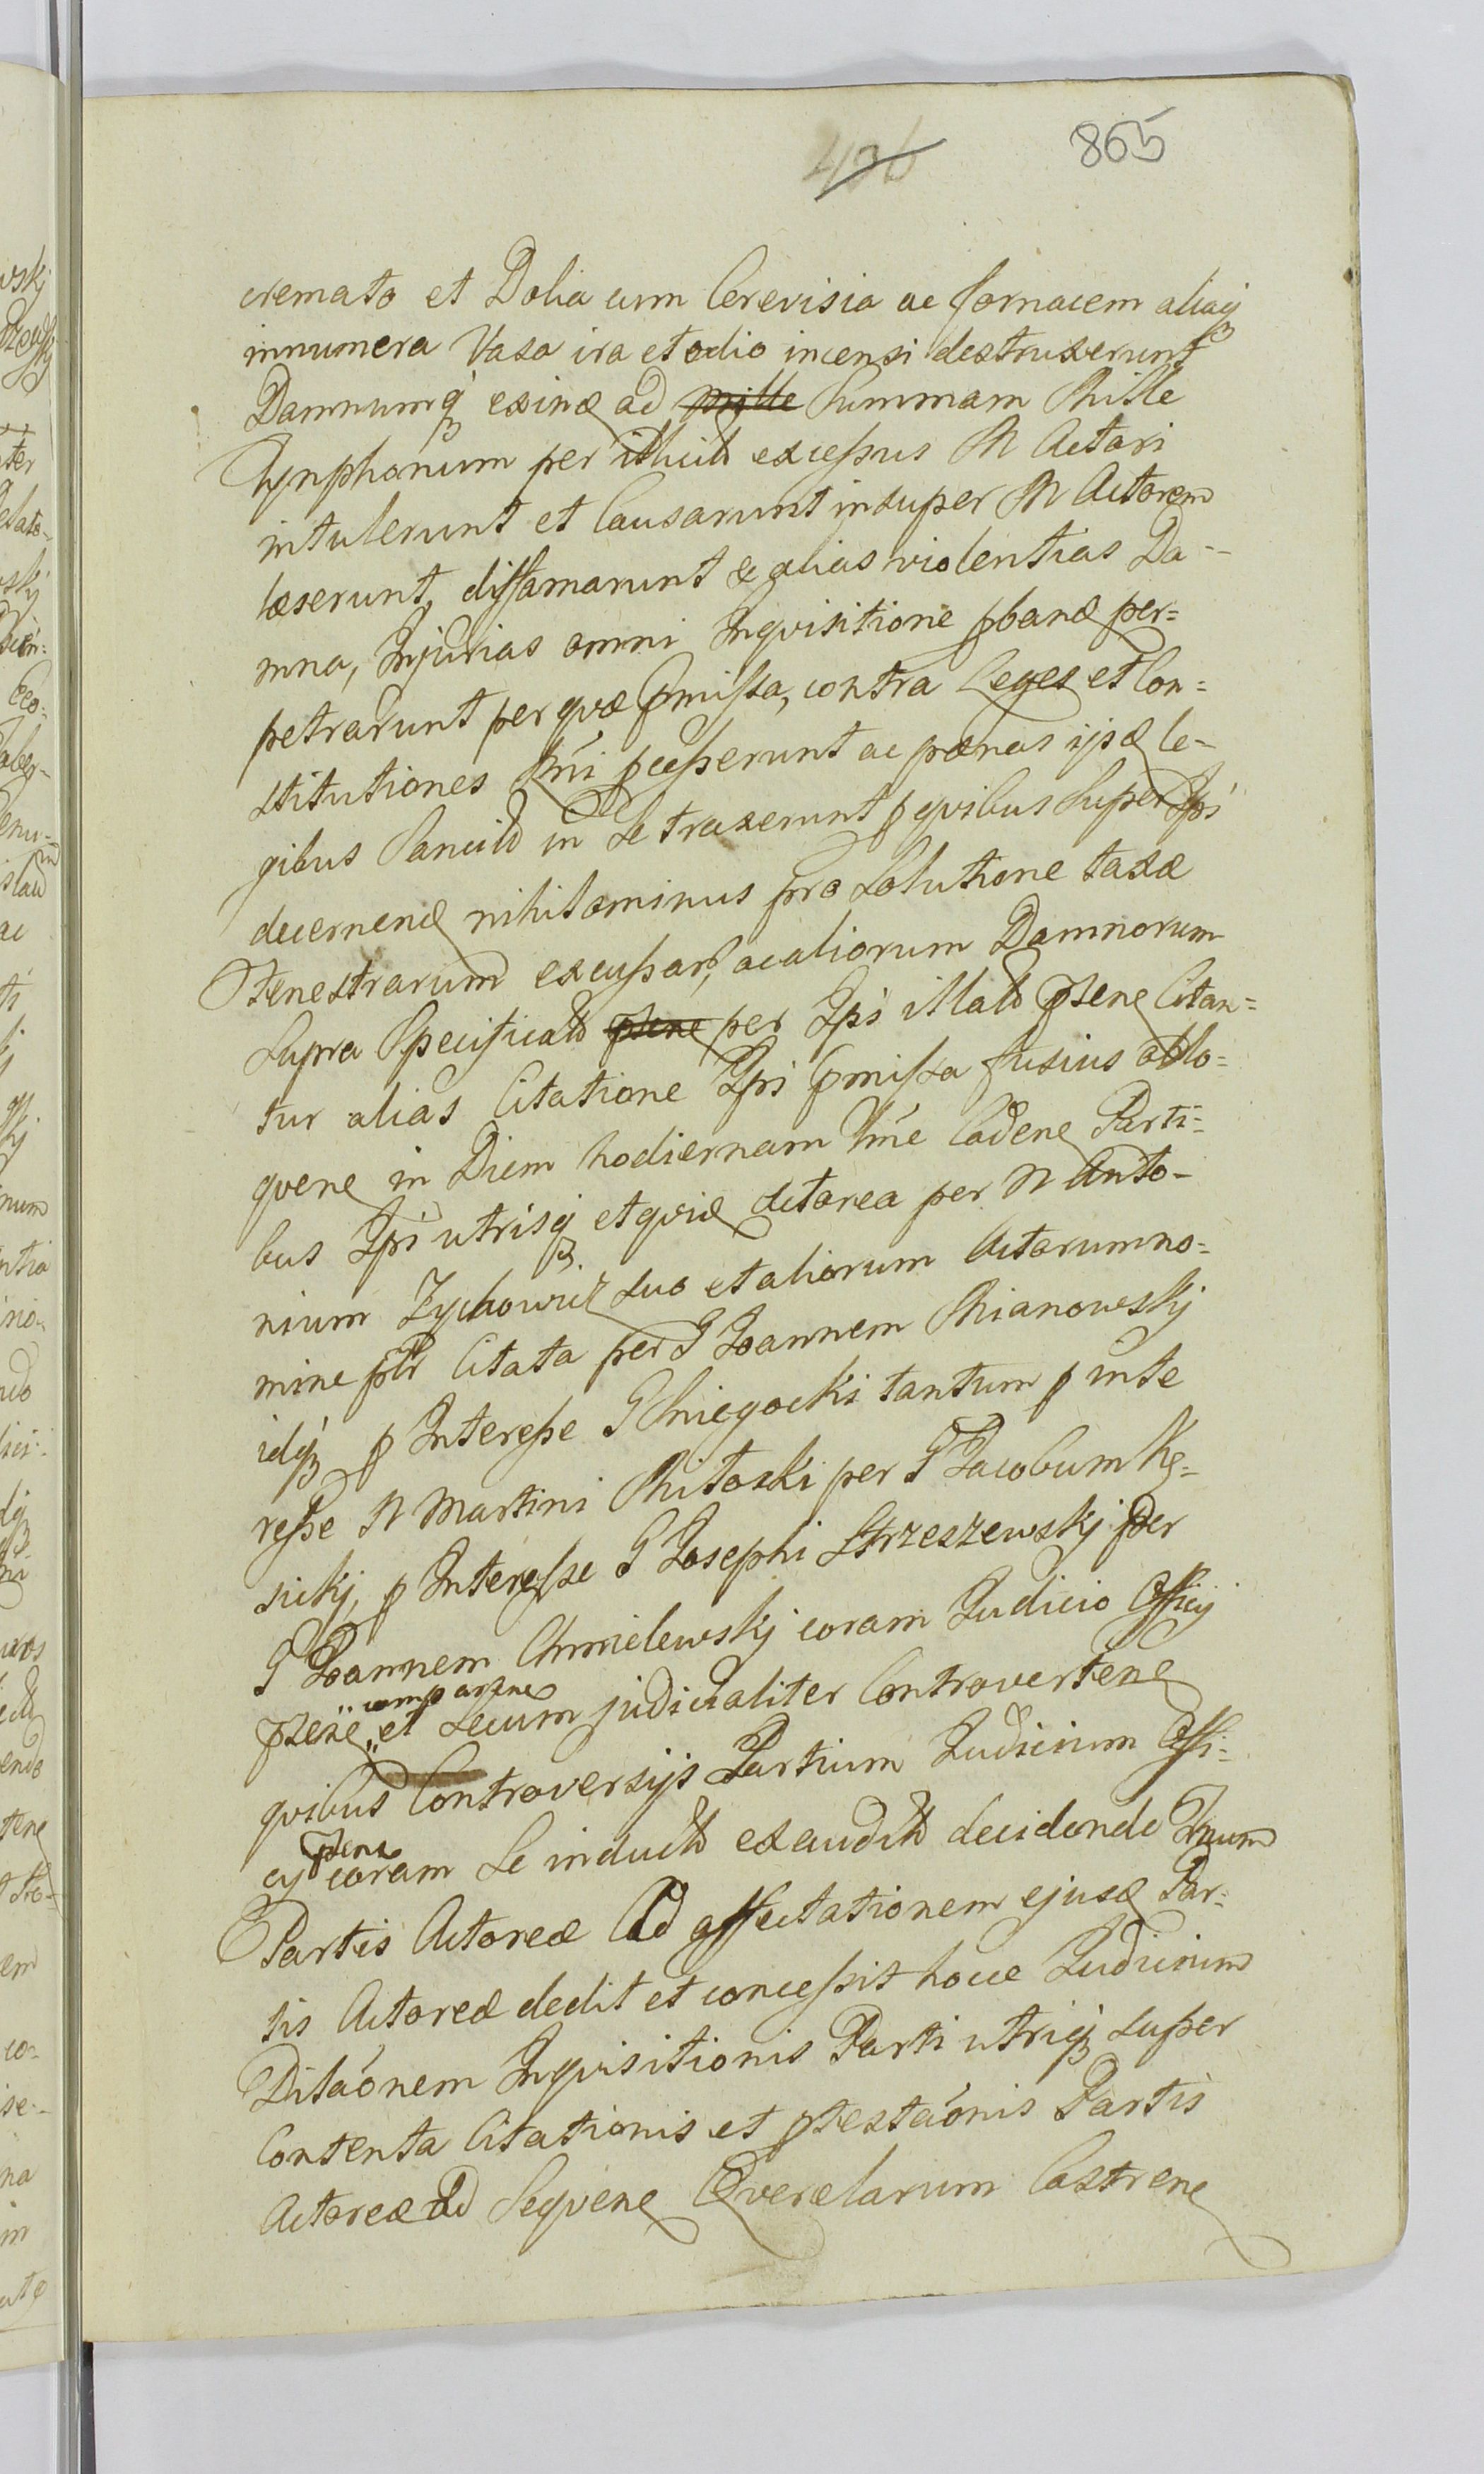 436 865
cremato et Dolia cum Cerevisia ac fornacem aliaq
innumera Vasa ira et odio incensi destruxerunt
Damnumq exinde ad mille Summam Mille
Tynphonum per illicid excessus N Actori
intulerunt et Causarunt insuper N Actorem
læserunt, diffamarunt & alias violentias Da-
mna, Injurias omni Inqvisitione pband per=
petrarunt per qvæ pmissa, contra Leges et Con=
stitutiones Rni pcesserunt ac pænas ijsd le-
gibus Sancitd in Se traxerunt p qvibus Super Ipś
decernend nihilominus pro Solutione taxæ
Fenestrarum excussar, ac aliorum Damnorum
Supra Specificatd psene per Ipś illatd psene Citan=
tur alias Citatione Ipś pmissa fusius obllo=
qvene in Diem hodiernam Vme Cadene Parti=
bus Ipś utrisq et qvid Actorea per N Anto-
nium Zychowicz suo et aliorum Actorum no=
mine pltr Citata per G Joannem Mianowskj
idq p Interesse G Sniegocki tantum p inte
resse N Martini Mitoski per G Jacobum Kę=
sickj, p Interesse G Josephi Strzeszewskj per
G Joannem Chmielewskj coram Judicio Officij
psene " comparene " et Secum judicialiter Controvertene
qvibus Controversijs Partium Judicium Offi=
cij psene coram Se inductd exauditd decidendo Tnum
Partis Actoreæ Ad affectationem ejusd Par=
tis Actoreæ dedit et concessit hocce Judicium
Dilaónem Inqvisitionis Parti utriq super
Contenta Citationis et ptestaónis Partis
Actoreæ Ad Seqvene Qverelarum Castrene